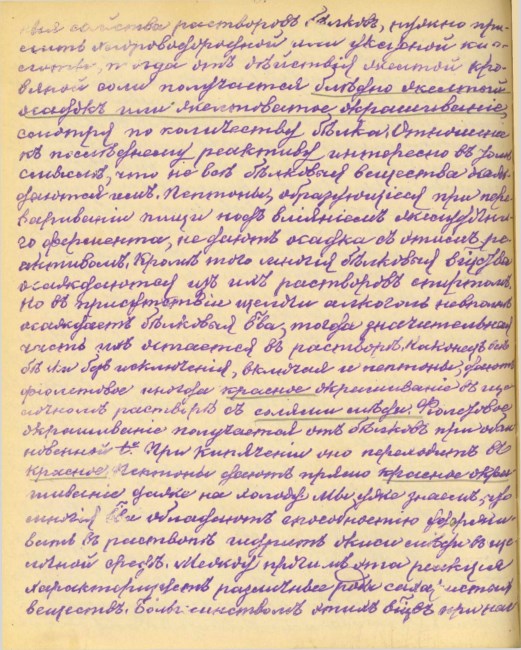 свойства растворовъ бѣлковъ, нужно при-
лить хлороводородной или уксусной ки-
слоты, тогда отъ дѣйствія желтой кро-
вяной соли получается блѣдно желтый
осадокъ или желтоватое окрашиваніе,
смотря по количеству бѣлка. Отношеніе
къ послѣднему реактиву интересно въ томъ
смыслѣ, что не всѣ бѣлковыя вещества осаж-
даются имъ. Пептоны, образующіеся при пере
вариваніи пищи подъ вліяніемъ желудочна-
го фермента, не даютъ осадка съ этимъ ре-
активомъ. Кромѣ того многія бѣлковыя
осаждаются изъ ихъ растворовъ спиртомъ.
Но въ присутствіе щелочи алкоголь невполнѣ
осаждаетъ бѣлковыя тогда значительная
часть ихъ остается въ растворѣ. Наконецъ всѣ
безъ исключенія, включая и пептоны, даютъ
фіолетовое иногда красное окрашиваніе въ ще
лочномъ растворѣ съ солями мѣди. Фіолетовое
окрашиваніе получается отъ бѣлковъ при обык
новенной tº. При кипяченіи оно переходитъ въ
красное. Пептоны даютъ прямо красное окра
шиваніе даже на холоду. Мы уже знаемъ, что
многія обладаютъ способностію удержи-
вать въ растворѣ гидратъ окиси мѣди въ ще
лочной средѣ. Между прочимъ эта реакція
характеризуетъ различные рода сахаристыхъ
веществъ. Большинствомъ этихъ при наг